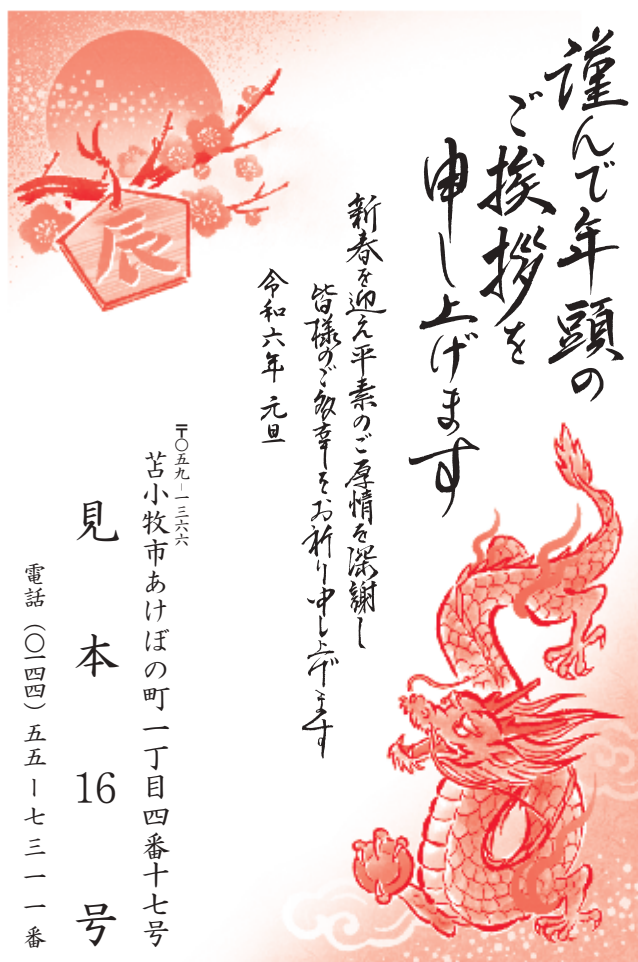 謹んで年頭の
ご挨拶を
申し上げます
新春を迎え平素のご厚情を深謝し
皆様のご多幸をお祈り申し上げます
令和六年 元旦
〒〇五九－一三六六
苫小牧市あけぼの町一丁目四番十七号
見本16号
電話（〇一四四）五五－七三一一番
辰